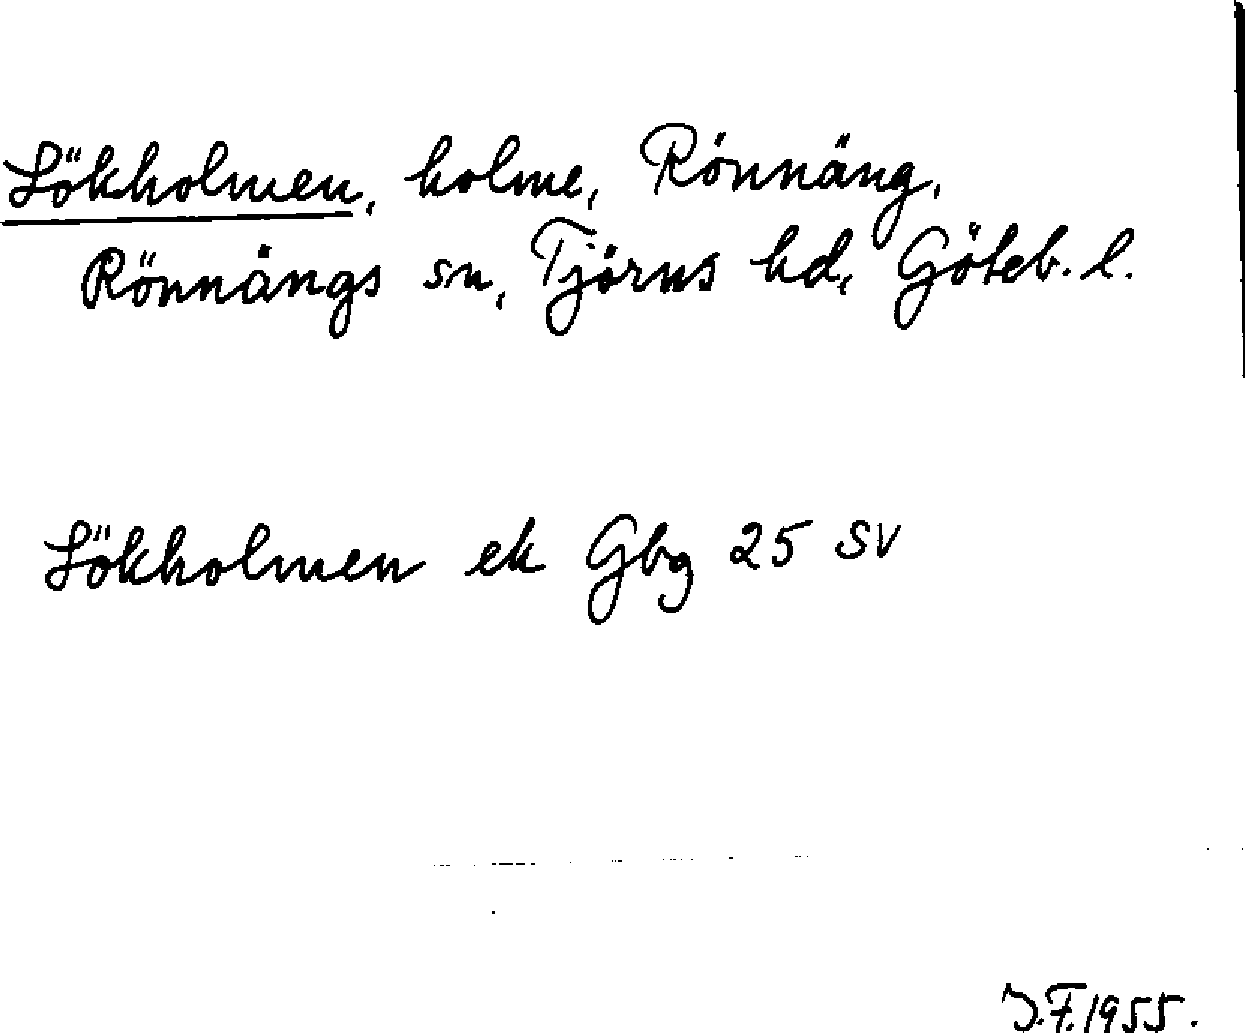 Lökholmen, holme, Rönnäng,
Rönnängs sn, Tjörns hd, Göteb. l.
Lökholmen ek Gbg 25 SV
J.F. 1955.